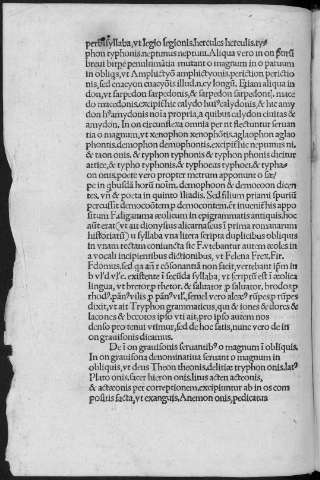 syllaba, vt legio legionis, hercules herculis, ty
phon typhonis, neptunus neptuni. Aliqua vero in on
breui hirpe penulumatia mutant o magnum in o paruum
in obliqs, vt Amphictyō amphictyonis, periction perictio
nis, sed enacyon enacyōis illud. n. ey longū. Etiam aliqua in
don, vt sarpedon sarpedonis, & sarpedon sarpedonſ. mace
do macedonis, excipiſhic calydo huiꝰ calydonis, & hic amy
don hꝰ amydonis noīa propria, a quibus calydon ciuitas &
amydon. In on circunflexa omnia per nt flectuntur seruan
tia o magnum, vt xenophon xenophōtis, aglaophon aglao
phontis, demophon demophontis, excipiſ hic neptunus ni,
& taon onis. & typhon typhonis & typhon phonis dicitur
attice, & typho typhonis & typhoeus typhoei, & typha
on onis, poete vero propter metrum apponunt o sæ/
pe in qbusdā horū noīm. demophoon & democoon dicen
tes, vn̄ & poeta in quinto Iliadis. Sed filium priami spuriū
percussit democoōtem p democontem, ēt inuenisſ his appo
situm F. digamma æolicum in epigrammatis antiquis, hoc
aūt erat (vt ait dionysius alicarnaseus ī prima romanarum
historiarū) u syllaba vna litera scripta duplicibus obliquis
in vnam rectam coniuncta sic F. vtebantur autem æoles in
a vocali incipientibus dictionibus, vt Felena Fret, Fir.
Fdomus, sed qa añ ꝛ cōsonantā non facit, vertebant ipm in
b vſ d vſ e. existente ī secūda syllaba, vt scripſ est ī æolica
lingua, vt bretor p rhetor. & saluator p saluator, brodos p
rhod'. pān' vilis. p pān' vil', semel vero alcæꝰ rūpes p rūpes
dixit, vt ait Tryphon grammaticus, qui & iones & dores &
lacones & beotos ipso vti ait, pro ipso autem nos
denso pro tenui vtimur, sed de hoc satis, nunc vero de in
on grauisonis dicamus.
De ī on grauisonis seruantibꝰ o magnum ī oblīquis.
In on grauisona denominatiua seruant o magnum in
obliquis, vt deus Theon theonis, delitiæ tryphon onis, latꝰ
Plato onis, sacer hieron onis, litus acteo acteonis,
& actæonis per correptionem, excipiuntur ab in os com
posita facta, vt exanguis, Anemon onis, pedicatus